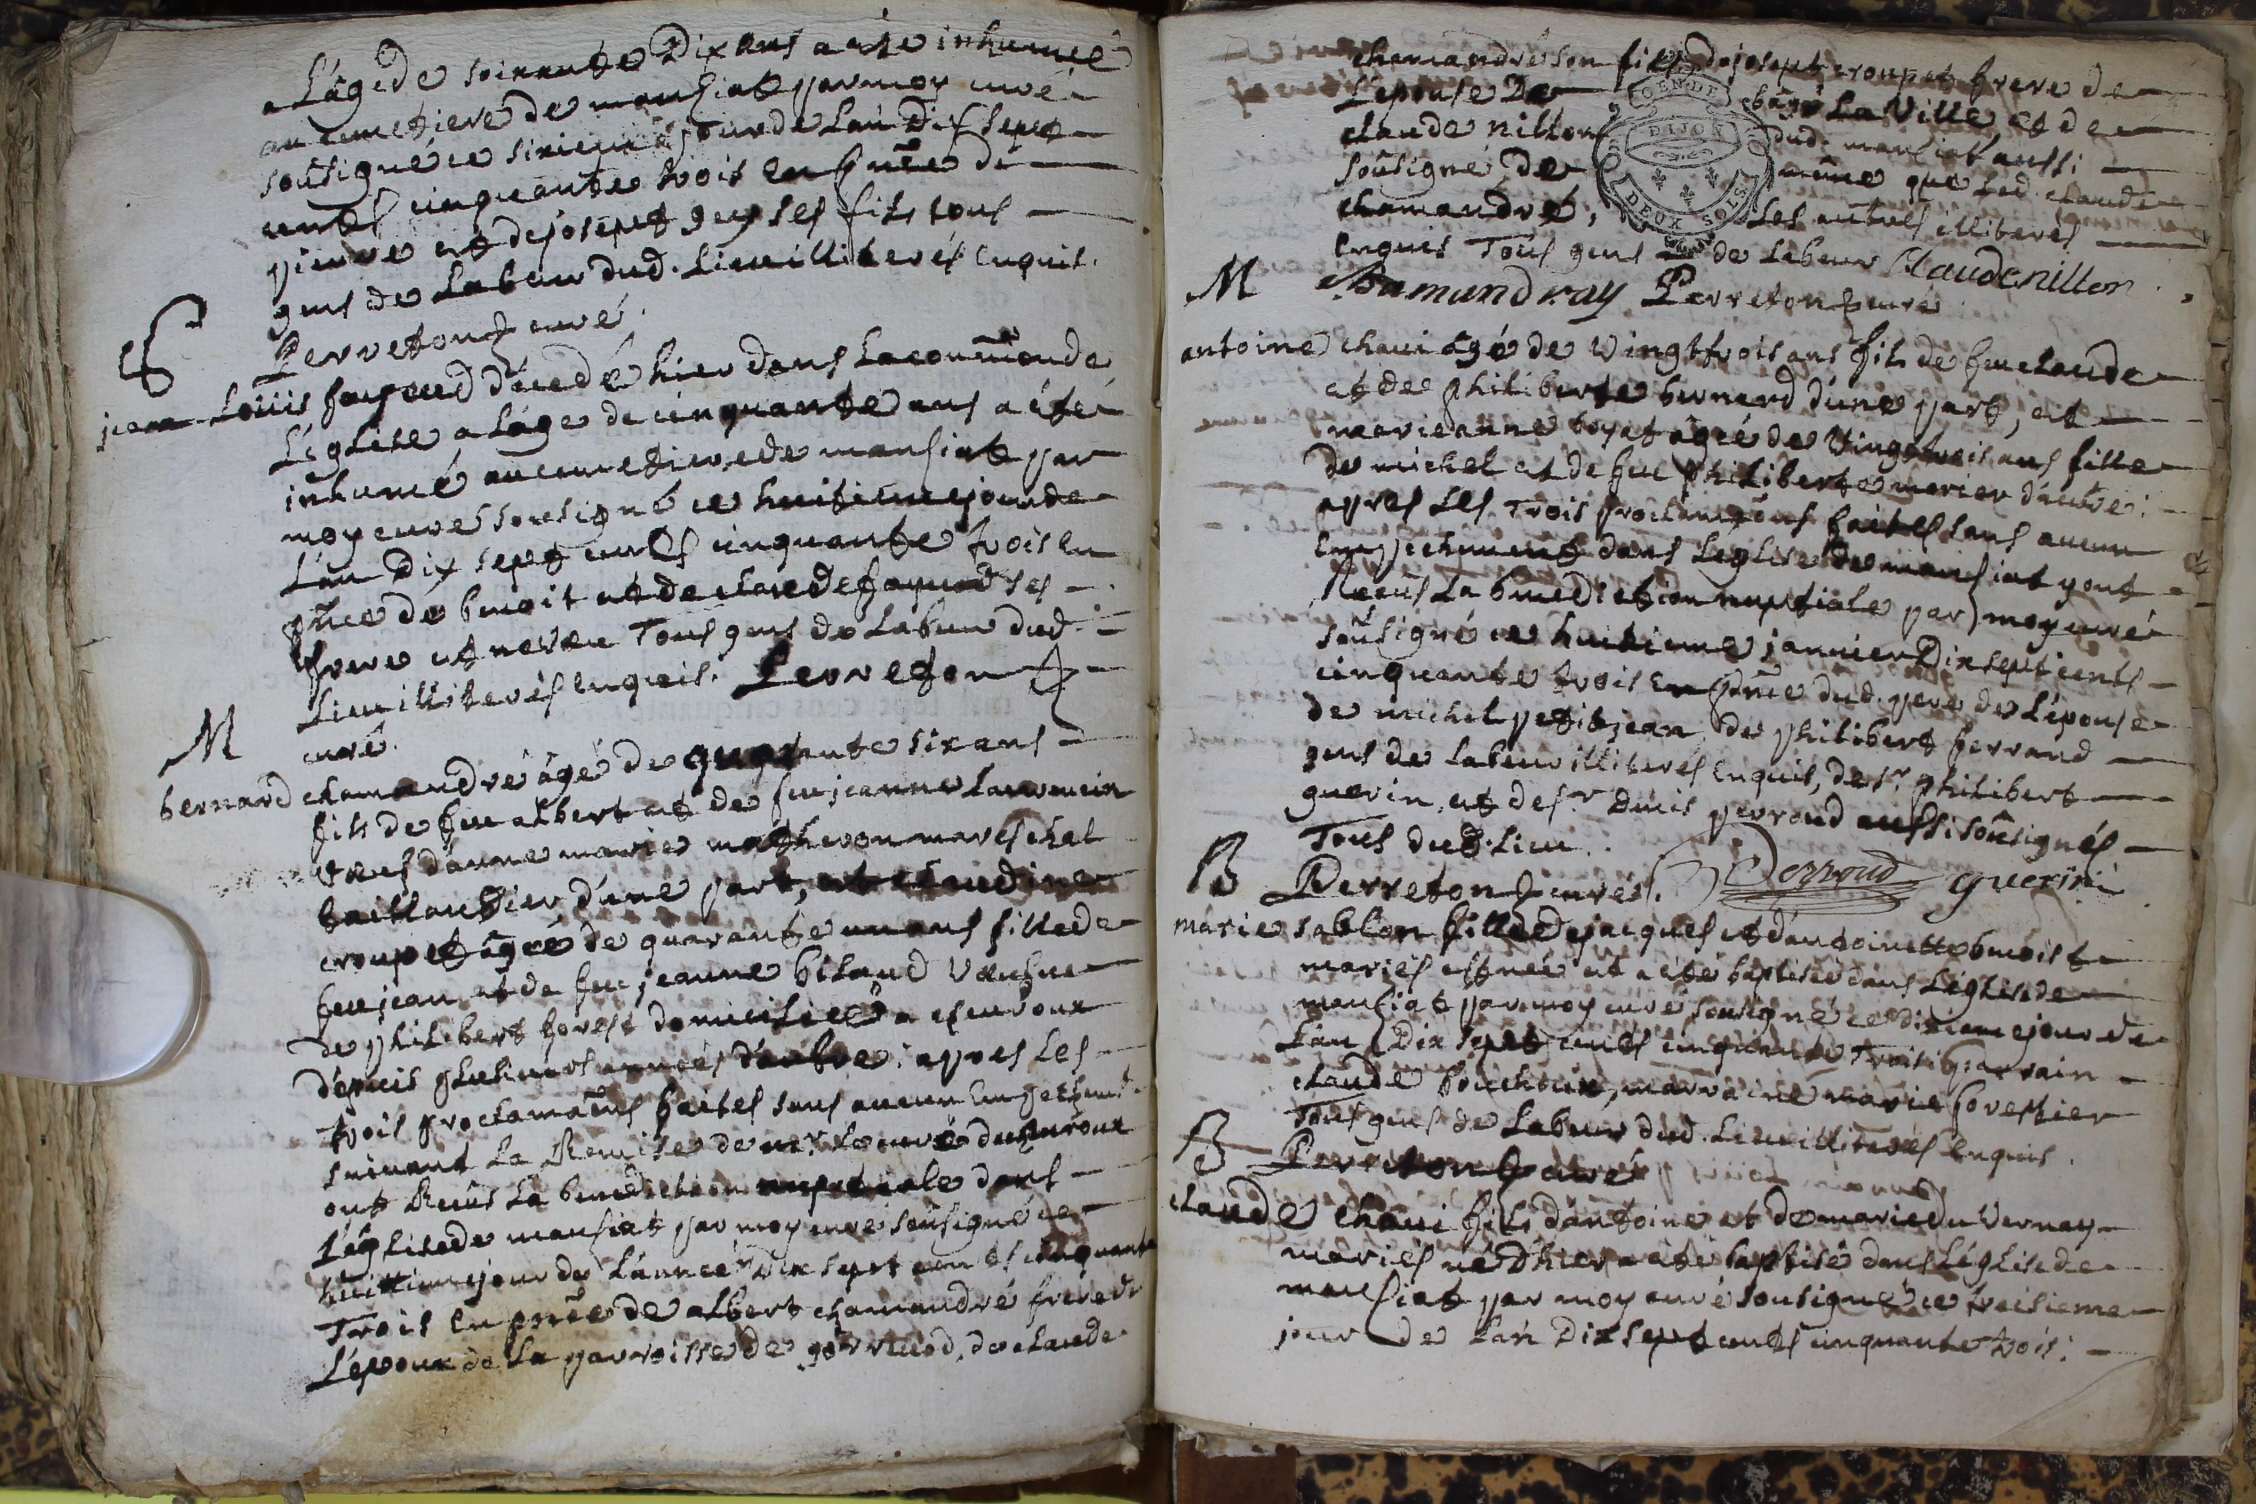 a L'âge de soixante Dix ans a eté inhumé
au cimetiere de manziat par moy curé
soûsigné ce sixieme jour de L'an Dix sept
cents cinquante trois en pnce de
pierre et de josept guy ses fils tous
gens de Labeur dud. Lieu illiterés Enquis.
Perreton curé.
jean Loüis décedé hier dans La commune de
L'église a L'âge de cinquante ans a été
inhumé au cimetiere de manziat par
moy curé soûsigné ce huitieme jour de
L'an Dix sept cents cinquante trois en
pnce de benoit et de claude ses
frere et neveu Tous gens de Labeur dud.
Lieu illiterés Enquis. Perreton
curé.
M
bernard chamandré âgé de quarante six ans
fils de feu albert et de feu jeanne
veuf d'anne marie mareschal
taillandier d'une part, et claudine
croupet âgée de quarante un ans fille de
feu jean et de feu jeanne biland veufve
de philibert forest domiciliée a
depuis plusieurs années d'autre: apres Les
trois proclamãons faites sans aucun Empechemt.
suivant La Remise de mr. Le curé
ont Reçus La benediction nuptiale dans
L'église de manziat par moy curé soûsigné ce
huitieme jour de L'année Dix sept cents cinquante
Trois En pnce de albert chamandré frere de
L'epoux de La parroisse de gorrevod, de claude
chamandré son fils, de josept croupet frere de
L'epouse De bâgé La Ville, et de
claude nillon dud. manziat aussi
soûsigné, de même que Led. claude
chamandré, Les autres illiterés
Enquis Tous gens de Labeur Claude nillon
Chamandray Perreton curé
M
antoine chavi âgé de Vingt trois ans fils de feu claude
et de philiberte bernard d'une part, et
marie anne boyat âgée de Vingt trois ans fille
de michel et de feu philiberte morier d'autre:
apres Les Trois proclamãons faites sans aucun
Empechement dans L'eglise de manziat y ont
Reçus La benediction nuptiale par moy curé
soûsigné ce huitieme janvier Dix sept cents
cinquante trois En pnce dud. pere de L'épouse
de michel petitjean, de philibert ferrand
gens de Labeur illiterés Enquis, de sr. philibert
guerin, et de sr Denis perroud aussi soûsignés
Tous dud. Lieu.
Perreton curé. Perroud guerin
B
marie sablon fille de jacques et d'antoinette benoist
mariés est née et a été baptisée dans L'église de
manziat par moy curé soûsigné ce dixieme jour de
L'an Dix sept cents cinquante Trois: parrain
claude bouchoux, marraine marie forestier
Tous gens de Labeur dud. Lieu illiterés Enquis.
B Perreton curé
claude chavi fils d'antoine et de marie du Vernay
mariés né d'hier a été baptisé dans L'église de
manziat par moy curé soûsigné ce treisieme
jour de L'an Dix sept cents cinquante trois:
GEN. DE
DIJON
DEUX SOLS